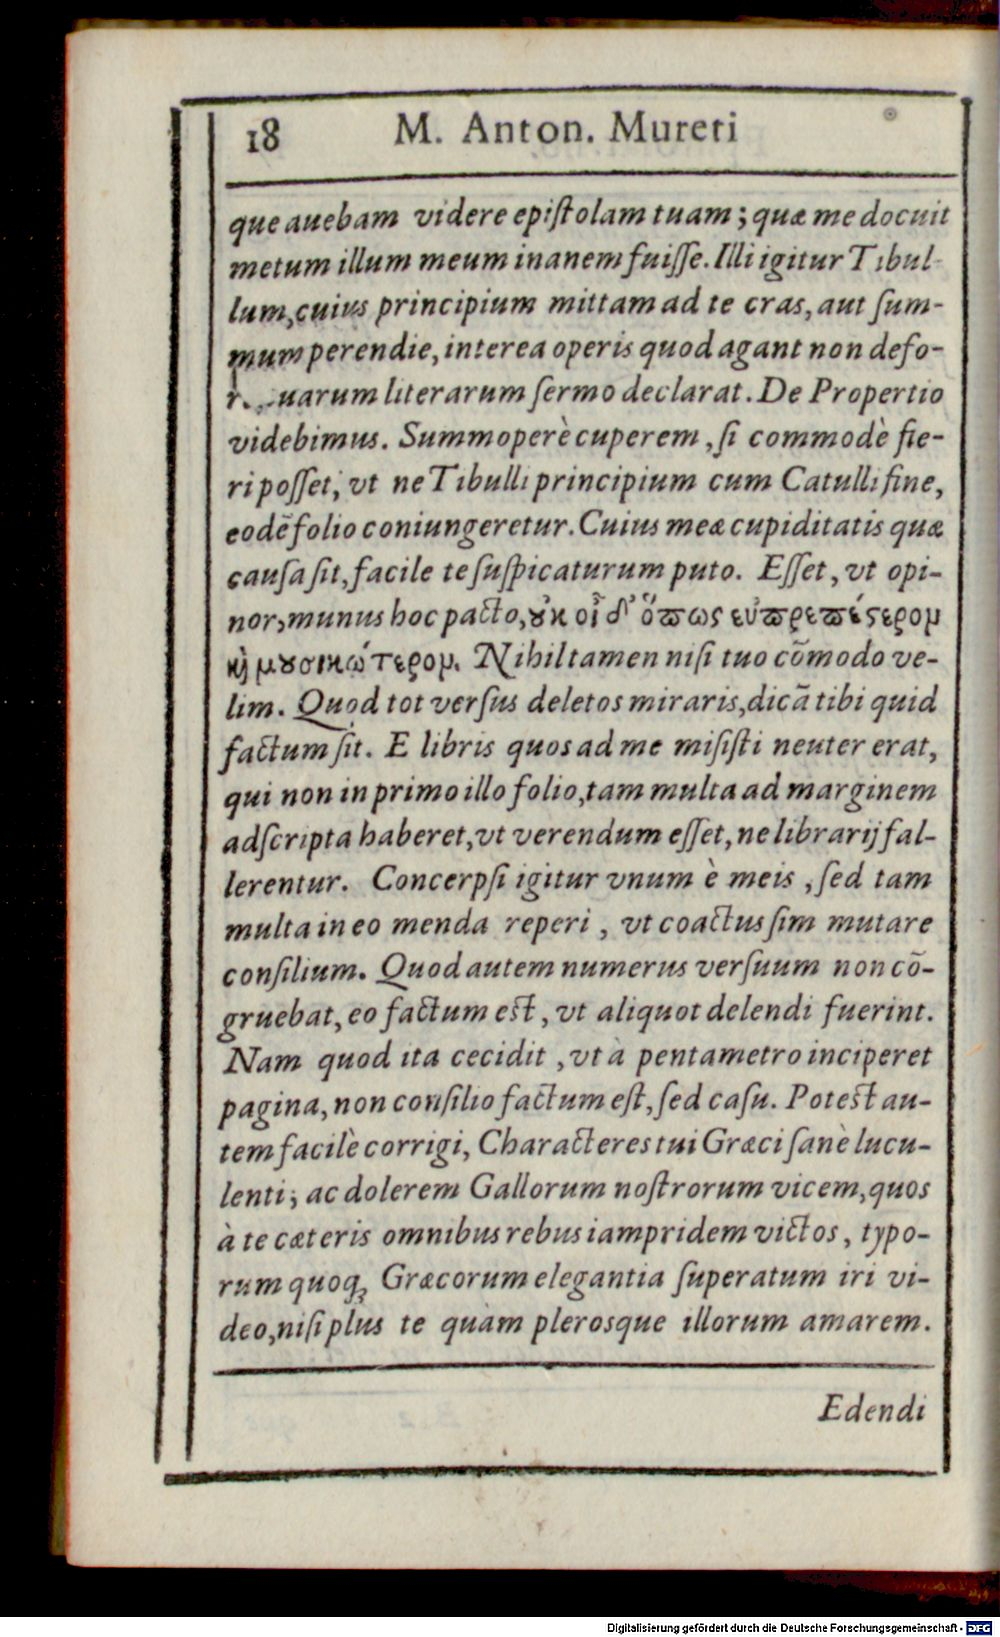 18 M. Anton. Mureti
que auebam videre epiſtolam tuam; quæ me docuit
metum illum meum inanem fuiſſe. Illi igitur Tibul-
lum, cuius principium mittam ad te cras, aut ſum-
mum perendie, interea operis quod agant non defo-
uarum literarum ſermo declarat. De Propertio
videbimus. Summoperè cuperem, ſi commodè fie-
ri poſſet, vt ne Tibulli principium cum Catulli fine,
eodē folio coniungeretur. Cuius meæ cupiditatis quæ
cauſa ſit, facile te ſuſpicaturum puto. Eſſet, vt opi-
nor, munus hoc pacto, ȣκ οἶδ' ὅϖως εὐϖρεϖέϛερομ
κὶ μȣσικώτερομ. Nihil tamen niſi tuo cōmodo ve-
lim. Quod tot verſus deletos miraris, dicā tibi quid
factum ſit. E libris quos ad me miſiſti neuter erat,
qui non in primo illo folio, tam multa ad marginem
adſcripta haberet, vt verendum eſſet, ne librarij fal-
lerentur. Concerpſi igitur vnum è meis, ſed tam
multa in eo menda reperi, vt coactus ſim mutare
conſilium. Quod autem numerus verſuum non cō-
gruebat, eo factum eſt, vt aliquot delendi fuerint.
Nam quod ita cecidit, vt à pentametro inciperet
pagina, non conſilio factum eſt, ſed caſu. Poteſt au-
tem facilè corrigi, Characteres tui Græci ſanè lucu-
lenti; ac dolerem Gallorum noſtrorum vicem, quos
à te cæteris omnibus rebus iampridem victos, typo-
rum quoqꝫ Græcorum elegantia ſuperatum iri vi-
deo, niſi plus te quàm plerosque illorum amarem.
Edendi
Digitalisierung gefördert durch die Deutsche Forschungsgemeinschaft - DFG